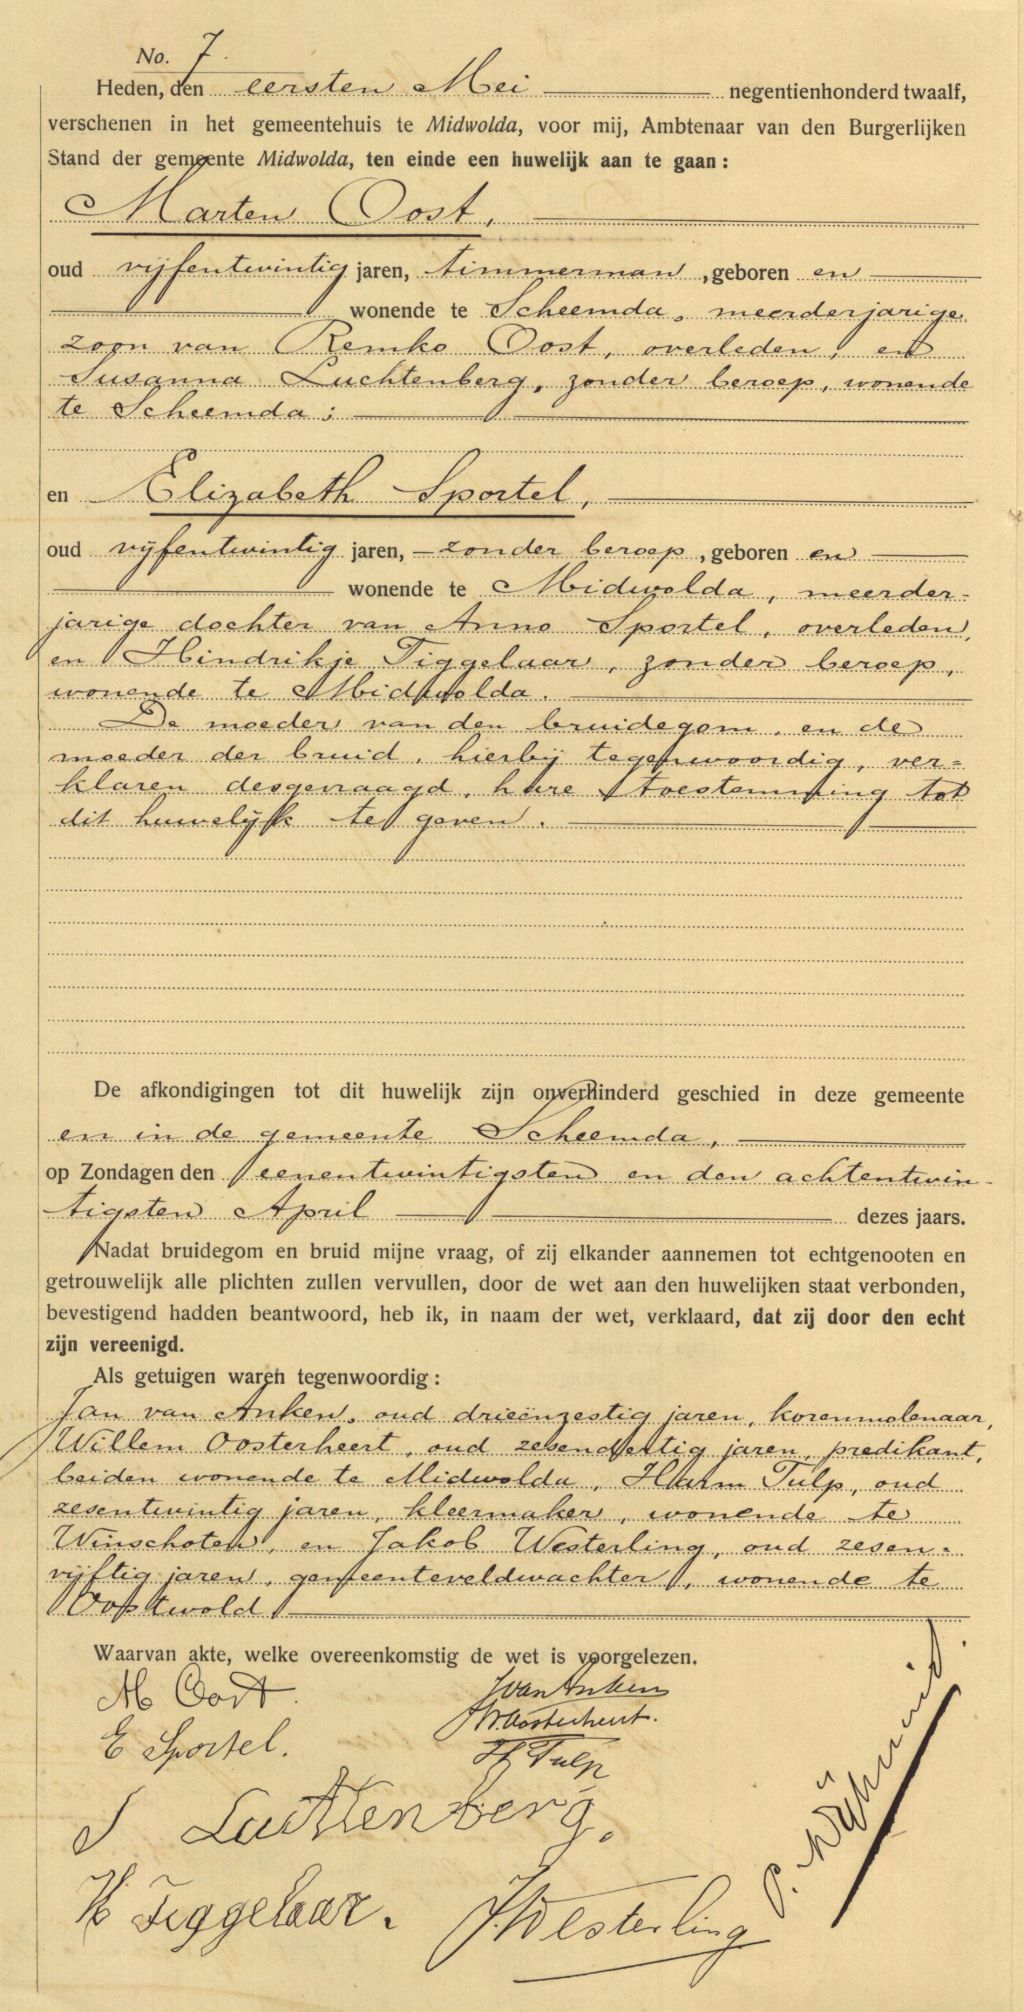 No. 7.
Heden, den eersten Mei negentienhonderd twaalf,
verschenen in het gemeentehuis te Midwolda, voor mij, Ambtenaar van den Burgerlijken
Stand der gemeente Midwolda, ten einde een huwelijk aan te gaan:
Marten Oost,
oud vijfentwintig jaren, timmerman, geboren en
wonende te Scheemda, meerderjarige
zoon van Remko Oost, overleden, en
Susanna Luchtenberg, zonder beroep, wonende
te Scheemda;
en Elizabeth Sportel,
oud vijfentwintig jaren, zonder beroep, geboren en
wonende te Midwolda, meerder-
jarige dochter van Anno Sportel, overleden,
en Hindrikje Tiggelaar, zonder beroep,
wonende te Midwolda.
De moeder van den bruidegom, en de
moeder der bruid, hierbij tegenwoordig, ver=
klaren desgevraagd, hare toestemming tot
dit huwelijk te geven.
De afkondigingen tot dit huwelijk zijn onverhinderd geschied in deze gemeente
en in de gemeente Scheemda,
op Zondagen den eenentwintigsten en den achtentwin-
tigsten April dezes jaars.
Nadat bruidegom en bruid mijne vraag, of zij elkander aannemen tot echtgenooten en
getrouwelijk alle plichten zullen vervullen, door de wet aan den huwelijken staat verbonden,
bevestigend hadden beantwoord, heb ik, in naam der wet, verklaard, dat zij door den echt
zijn vereenigd.
Als getuigen waren tegenwoordig:
Jan van Anken, oud drieënzestig jaren, korenmolenaar,
Willem Oosterheert, oud zesendertig jaren, predikant,
beiden wonende te Midwolda, Harm Tulp, oud
zesentwintig jaren, kleermaker, wonende te
Winschoten, en Jakob Westerling, oud zesen=
vijftig jaren, gemeenteveldwachter, wonende te
Oostwold
Waarvan akte, welke overeenkomstig de wet is voorgelezen.
M Oost. J van Anken
E Sportel. W. Oosterheert.
H Tulp
S Luchtenberg.
H Tiggelaar. J. Westerling